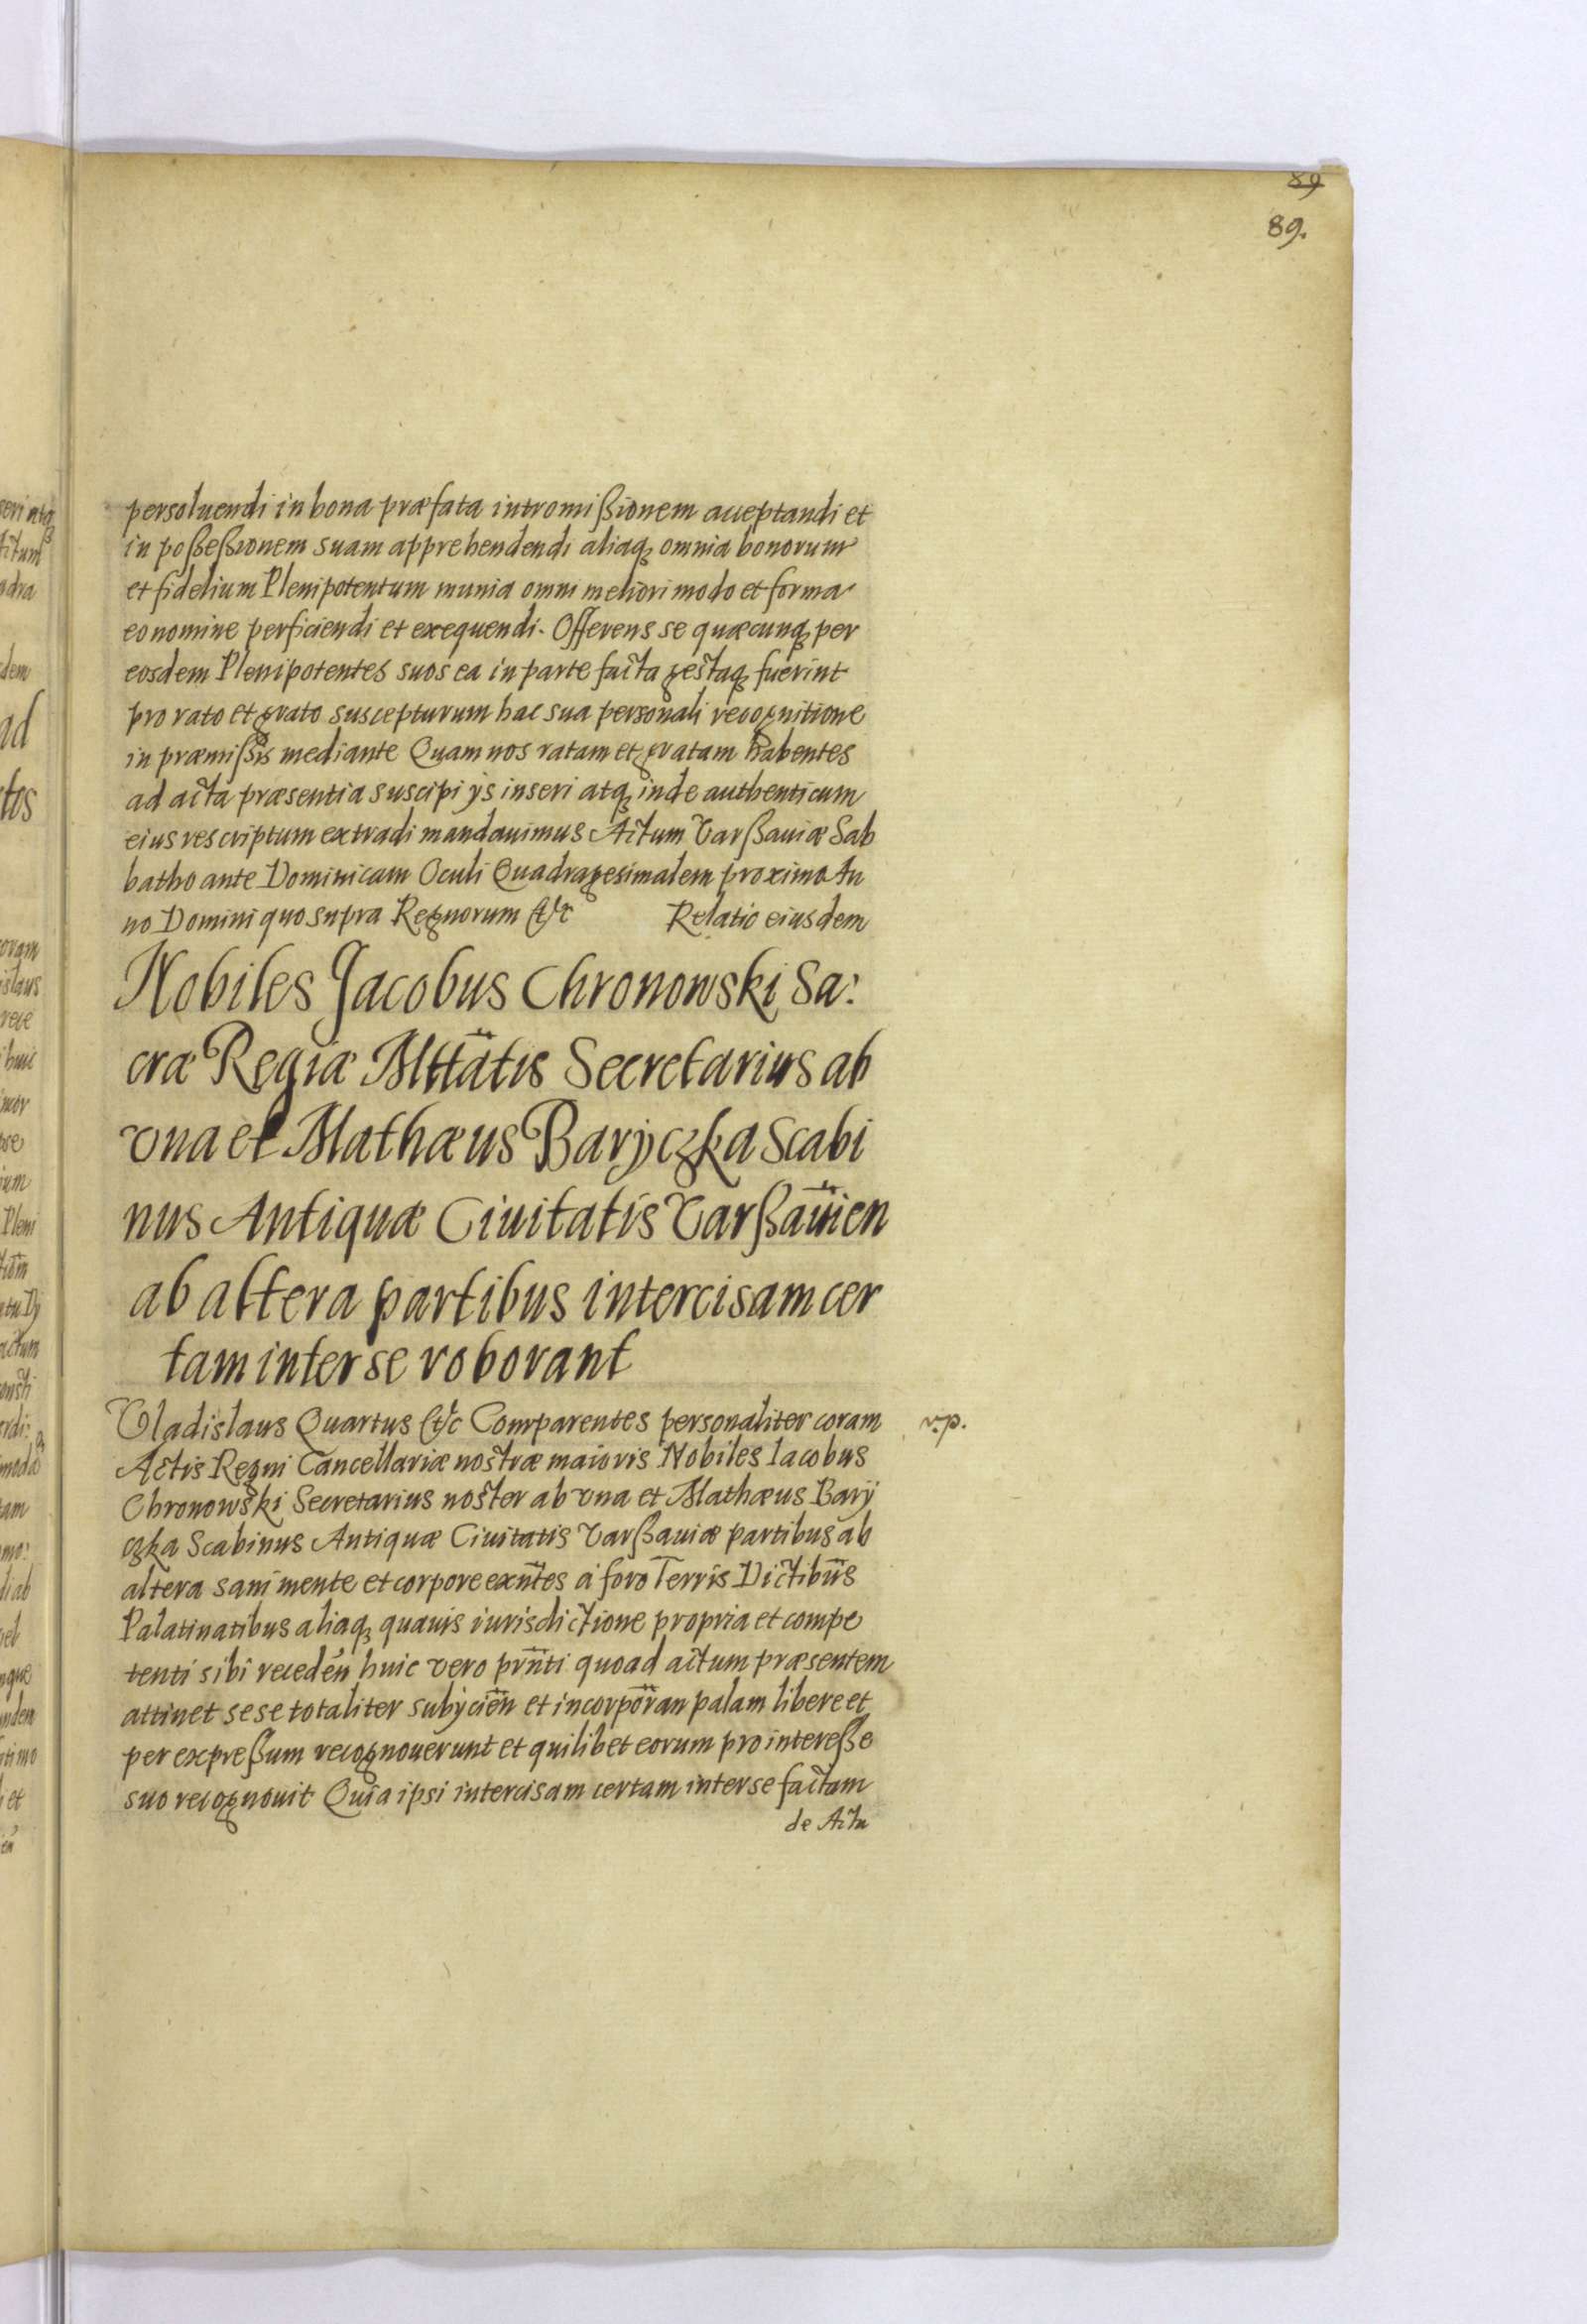 89
89.
persoluendi in bona præfata intromißionem acceptandi et
in poßeßionem suam apprehendendi aliaq; omnia bonorum
et fidelium Plenipotentum munia omni meliori modo et forma
eo nomine perficiendi et exequendi. Offerens se quæcunq; per
eosdem Plenipotentes suos ea in parte facta gestaq; fuerint
pro rato et grato suscepturum hac sua personali recognitione
in præmißis mediante Quam nos ratam et gratam habentes
ad acta præsentia suscipi ijs inseri atq; inde authenticum
eius rescriptum extradi mandauimus Actum Varßauiæ Sab
batho ante Dominicam Oculi Quadragesimalem proximo An
no Domini quo supra Regnorum &c Relatio eiusdem
Nobiles Jacobus Chronowski Sa:
cræ Regiæ Mttatis Secretarius ab
vna et Mathæus Baryczka Scabi
nus Antiquæ Ciuitatis Varßauien
ab altera partibus intercisam cer
tam inter se roborant
Vladislaus Quartus &c Comparentes personaliter coram
r.p.
Actis Regni Cancellariæ nostræ maioris Nobiles Iacobus
Chronowski Secretarius noster ab vna et Mathæus Bary
czka Scabinus Antiquæ Ciuitatis Varßauiæ partibus ab
altera sani mente et corpore exntes à foro Terris Dictibus
Palatinatibus aliaq; quauis iurisdictione propria et compe
tenti sibi receden huic vero prnti quoad actum præsentem
attinet sese totaliter subijcien et incorporan palam libere et
per expreßum recognouerunt et quilibet eorum pro intereße
suo recognouit Quia ipsi intercisam certam inter se factam
de Actu